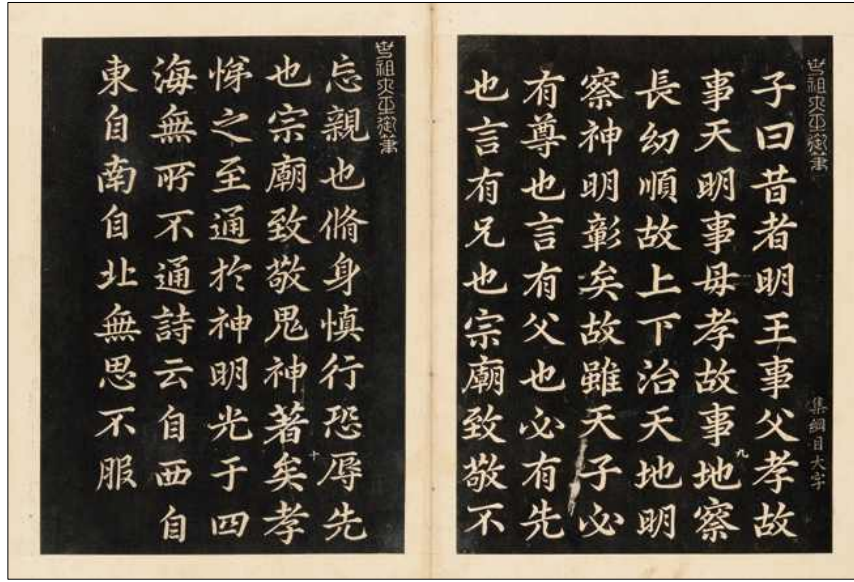 世祖大王御筆
集綱目大字
子曰昔者明王事父孝故
九
事天明事母孝故事地察
長幼順故上下治天地明
察神明彰矣故雖天子必
有尊也言有父也必有先
也言有兄也宗廟致敬不
世祖大王御筆
忘親也脩身慎行恐辱先
十
也宗廟致敬鬼神著矣孝
悌之至通於神明光于四
海無所不通詩云自西自
東自南自北無思不服